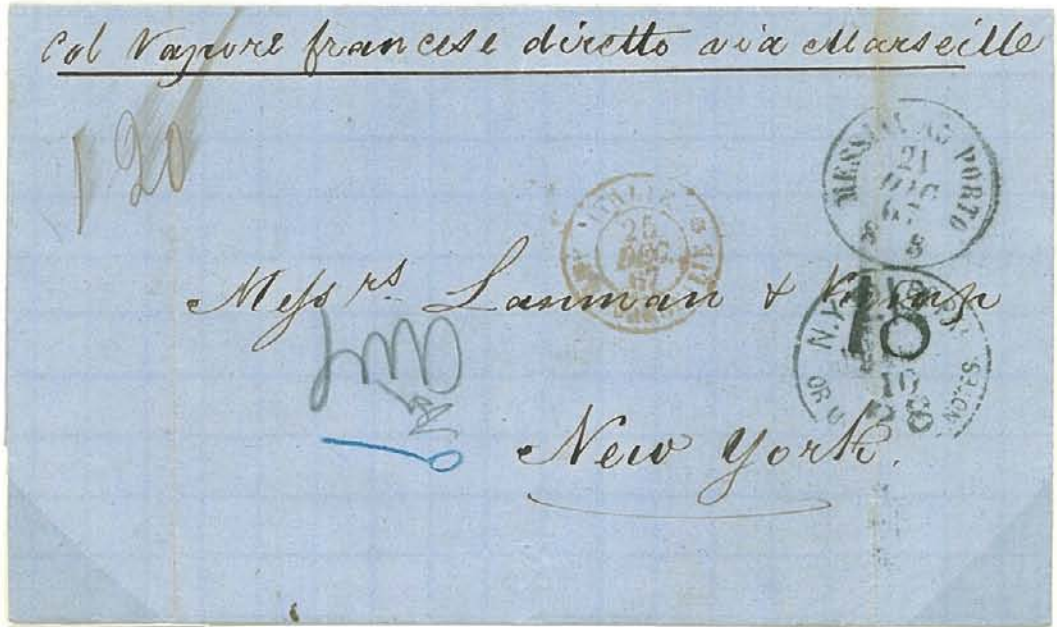 Col Vapore francese diretto via Marseille
120
MESSINA AL PORTO
21
DIC
67
8 S
ITALIE
25
DEC.
67
Messrs Lanman & Kemp
N.Y.
18
NOTES
OR U
New York.